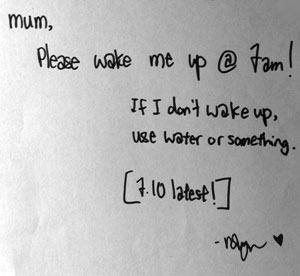 mum,
Please wake me up @ 7am!
If I don't wake up,
use water or something.
[7.10 latest!]